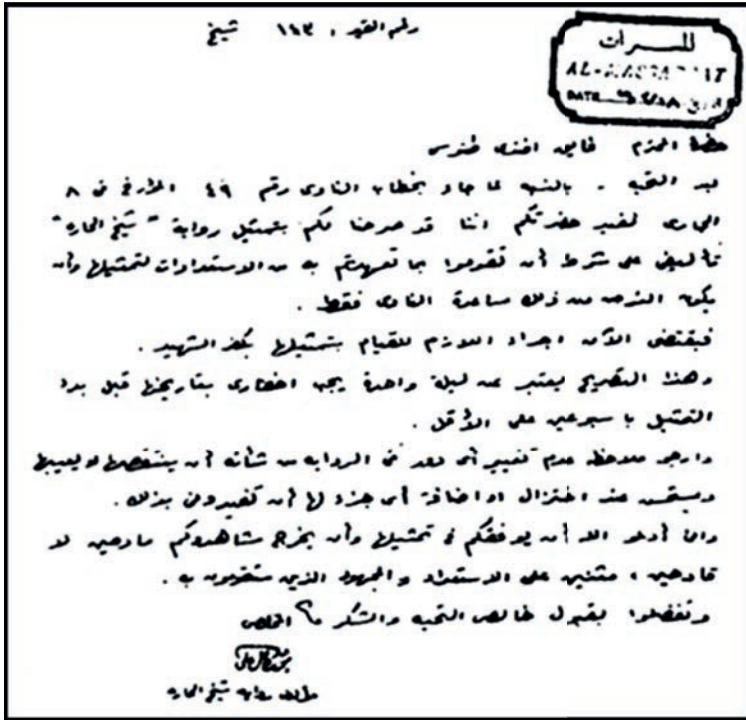 رقم القيد ، ١٤٣ شيخ
للمسرات
AL-MASSARAAT
DATE
حضرة المحترم فايق افندى طنوس
بعد التحية - بالنسبة لما جاء بخطاب النادى رقم ٤٩ المؤرخ فى ٨
الجارى نخبر حضرتكم اننا قد صرحنا لكم بتمثيل رواية " شيخ الحاره "
تأليفى على شرط أن تقوموا بما تعهدتم به من الاستعدادات لتمثيلها وأن
يكون الغرض من ذلك مساعدة النادى فقط .
فيقتضى الآن اجراء اللازم للقيام بتمثيلها بكفر الشهيد .
وهذا التصريح يعتبر عن ليلة واحدة يجب اخطارى بتاريخها قبل بدء
التمثيل باسبوعين على الأقل .
وارجو ملاحظة عدم تغيير أى دور فى الرواية من شأنه أن ينتقصها او يعيبها
ويستحسن عند اختزال او اضافة أى جزء لها أن تخبرونى بذلك .
وانا أدعو الله أن يوفقكم فى تمثيلها وأن يخرج مشاهدوكم مادحين لا
قادحين ، مثنين على الاستعداد والمجهود الذين ستقومون به .
وتفضلوا بقبول خالص التحية والشكر ،؟ المخلص
مؤلف رواية شيخ الحاره